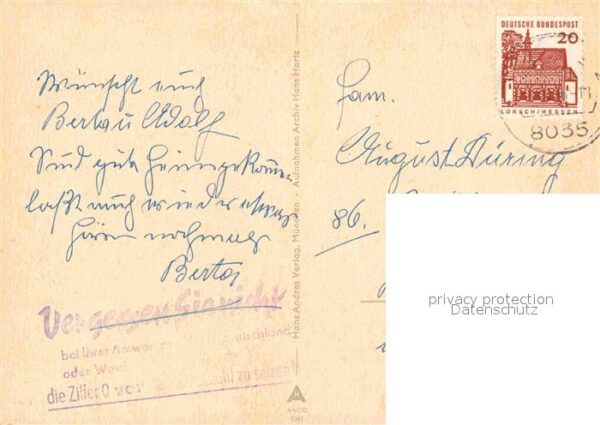 Wünscht euch
Berta u Adolf
Sind gut heimgekommen
laßt auch wieder etwas
hören nochmals
Berta
Vergessen Sie nicht
bei Ihrer Antwort
oder
die Ziffer 0 vor zu setzen!
Hans Andres Verlag, München - Aufnahmen Archiv Hans Hartz
ANDRO
DEUTSCHE BUNDESPOST
20
LORSCH/HESSEN
8035
Fam.
August Düring
86.
privacy protection
Datenschutz